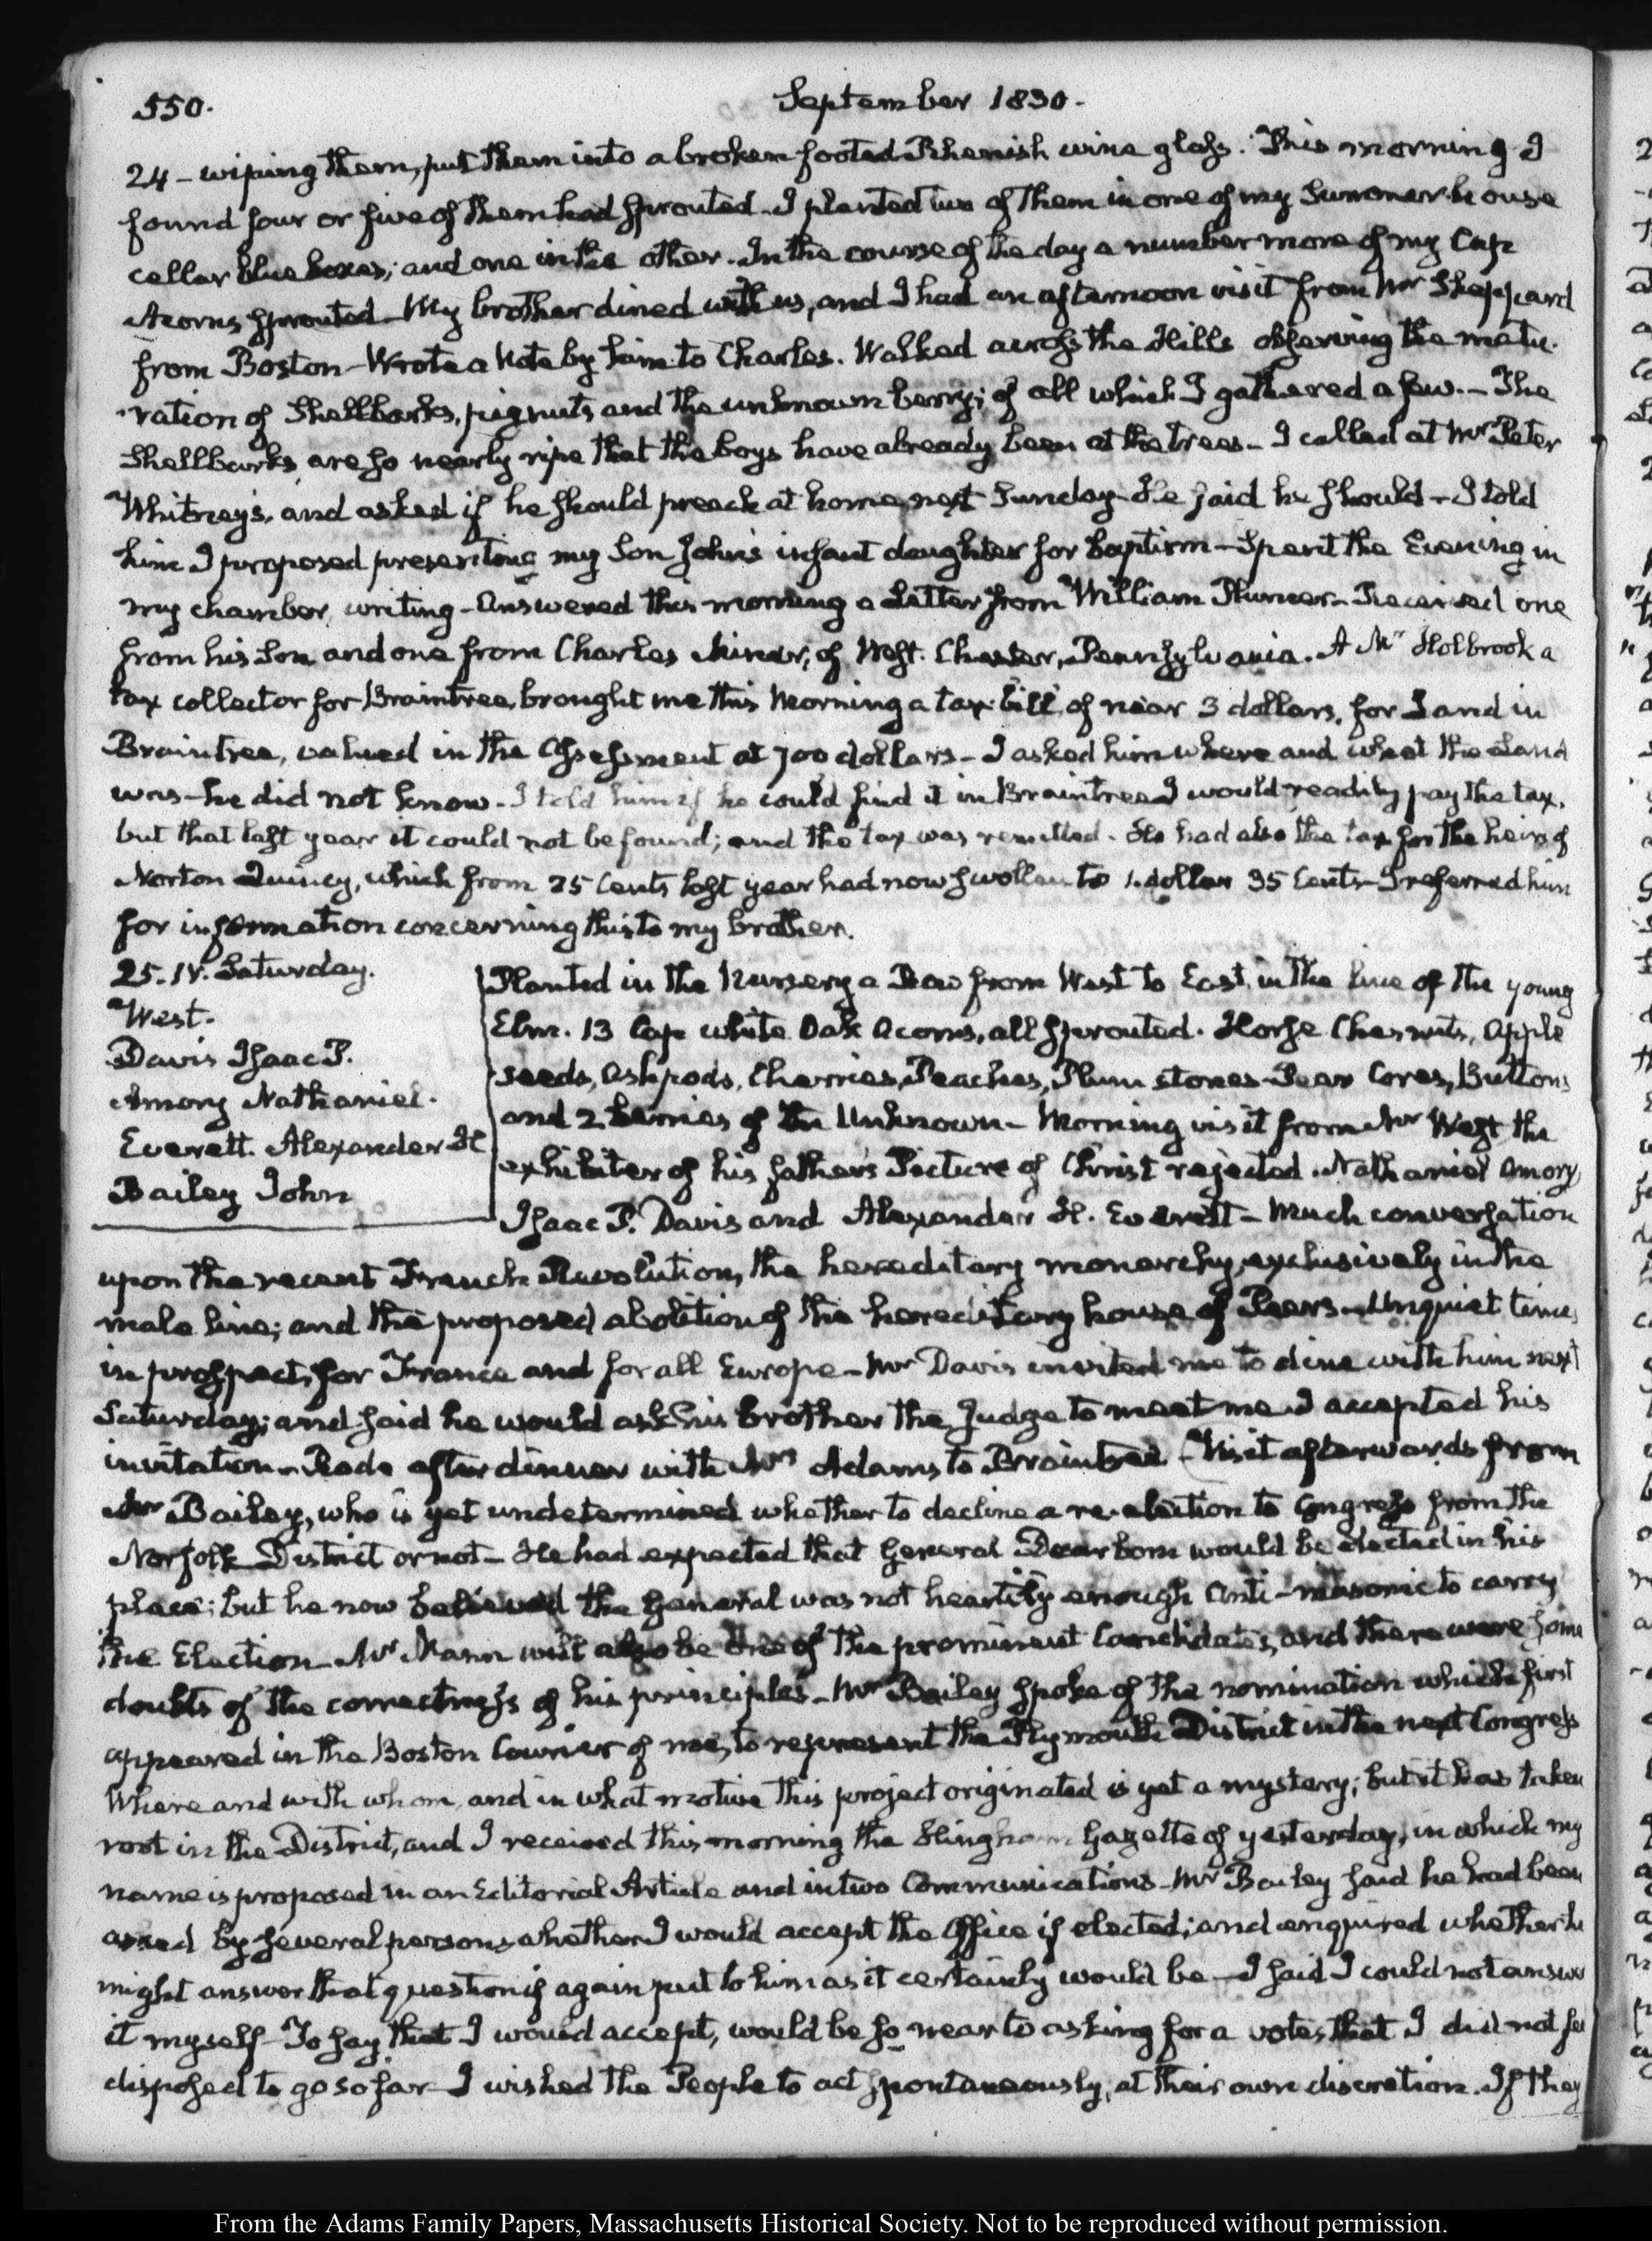 550.
September 1830.
24 - wiping them, put them into a broken footed Rhenish wine glass. This morning I
found four or five of them had sprouted. I planted two of them in one of my Summer-house
cellar blue boxes; and one in the other. In the course of the day a number more of my Cape
Acorns sprouted - My brother dined with us, and I had an afternoon visit from Mr Sheppard
from Boston - Wrote a Note by him to Charles. Walked across the Hills observing the matu-
ration of Shellbarks, pignuts and the unknown berry; of all which I gathered a few. - The
Shellbarks are so nearly ripe that the boys have already been at the trees - I called at Mr Peter
Whitney's, and asked if he should preach at home next Sunday - He said he should - I told
him I proposed presenting my Son John's infant daughter for baptism - Spent the Evening in
my chamber, writing - Answered this morning a Letter from William Plumer - Received one
from his Son and one from Charles Miner, of West-Chester, Pennsylvania. A Mr Holbrook a
tax collector for Braintree, brought me this Morning a tax-bill, of near 3 dollars, for Land in
Braintree, valued in the Assessment at 700 dollars - I asked him where and what the Land
was - he did not know - I told him if he could find it in Braintree I would readily pay the tax,
but that last year it could not be found; and the tax was remitted. He had also the tax for the heirs of
Norton Quincy, which from 25 Cents last year had now swollen to 1. dollar 35 Cents - I referred him
for information concerning this to my brother.
25. IV. Saturday.
West.
Davis Isaac P.
Amory Nathaniel.
Everett. Alexander H
Bailey John
Planted in the Nursery a Row from West to East, in the line of the young
Elm. 13 Cape white Oak Acorns, all sprouted. Horse Chesnuts, Apple
seeds, Ashpods, Cherries, Peaches, Plum stones - Pear Cores, Buttons
and 2 berries of the Unknown - Morning visit from Mr West the
exhibiter of his father's Picture of Christ rejected. Nathaniel Amory,
Isaac P. Davis and Alexander H. Everett - Much conversation
upon the recent French Revolution, the hereditary monarchy, exclusively in the
male line; and the proposed abolition of the hereditary house of Peers - Unquiet times
in prospect, for France and for all Europe - Mr Davis invited me to dine with him next
Saturday; and said he would ask his brother the Judge to meet me. I accepted his
invitation - Rode after dinner with Mrs Adams to Braintree - Visit afterwards from
Mr Bailey, who is yet undetermined whether to decline a re-election to Congress from the
Norfolk District or not - He had expected that General Dearborn would be elected in his
place; but he now believed the General was not heartily enough Anti-masonic to carry
the Election - Mr Mann will also be one of the prominent Candidates, and there were some
doubts of the correctness of his principles - Mr Bailey spoke of the nomination which first
appeared in the Boston Courier of me, to represent the Plymouth District in the next Congress
Where and with whom, and in what motive this project originated is yet a mystery; but it has taken
root in the District, and I received this morning the Hingham Gazette of yesterday, in which my
name is proposed in an Editorial Article and in two Communications - Mr Bailey said he had been
asked by several persons whether I would accept the Office if elected; and enquired whether he
might answer that question if again put to him as it certainly would be - I said I could not answer
it myself - To say that I would accept, would be so near to asking for a vote, that I did not feel
disposed to go so far - I wished the People to act spontaneously, at their own discretion. If they
From the Adams Family Papers, Massachusetts Historical Society. Not to be reproduced without permission.